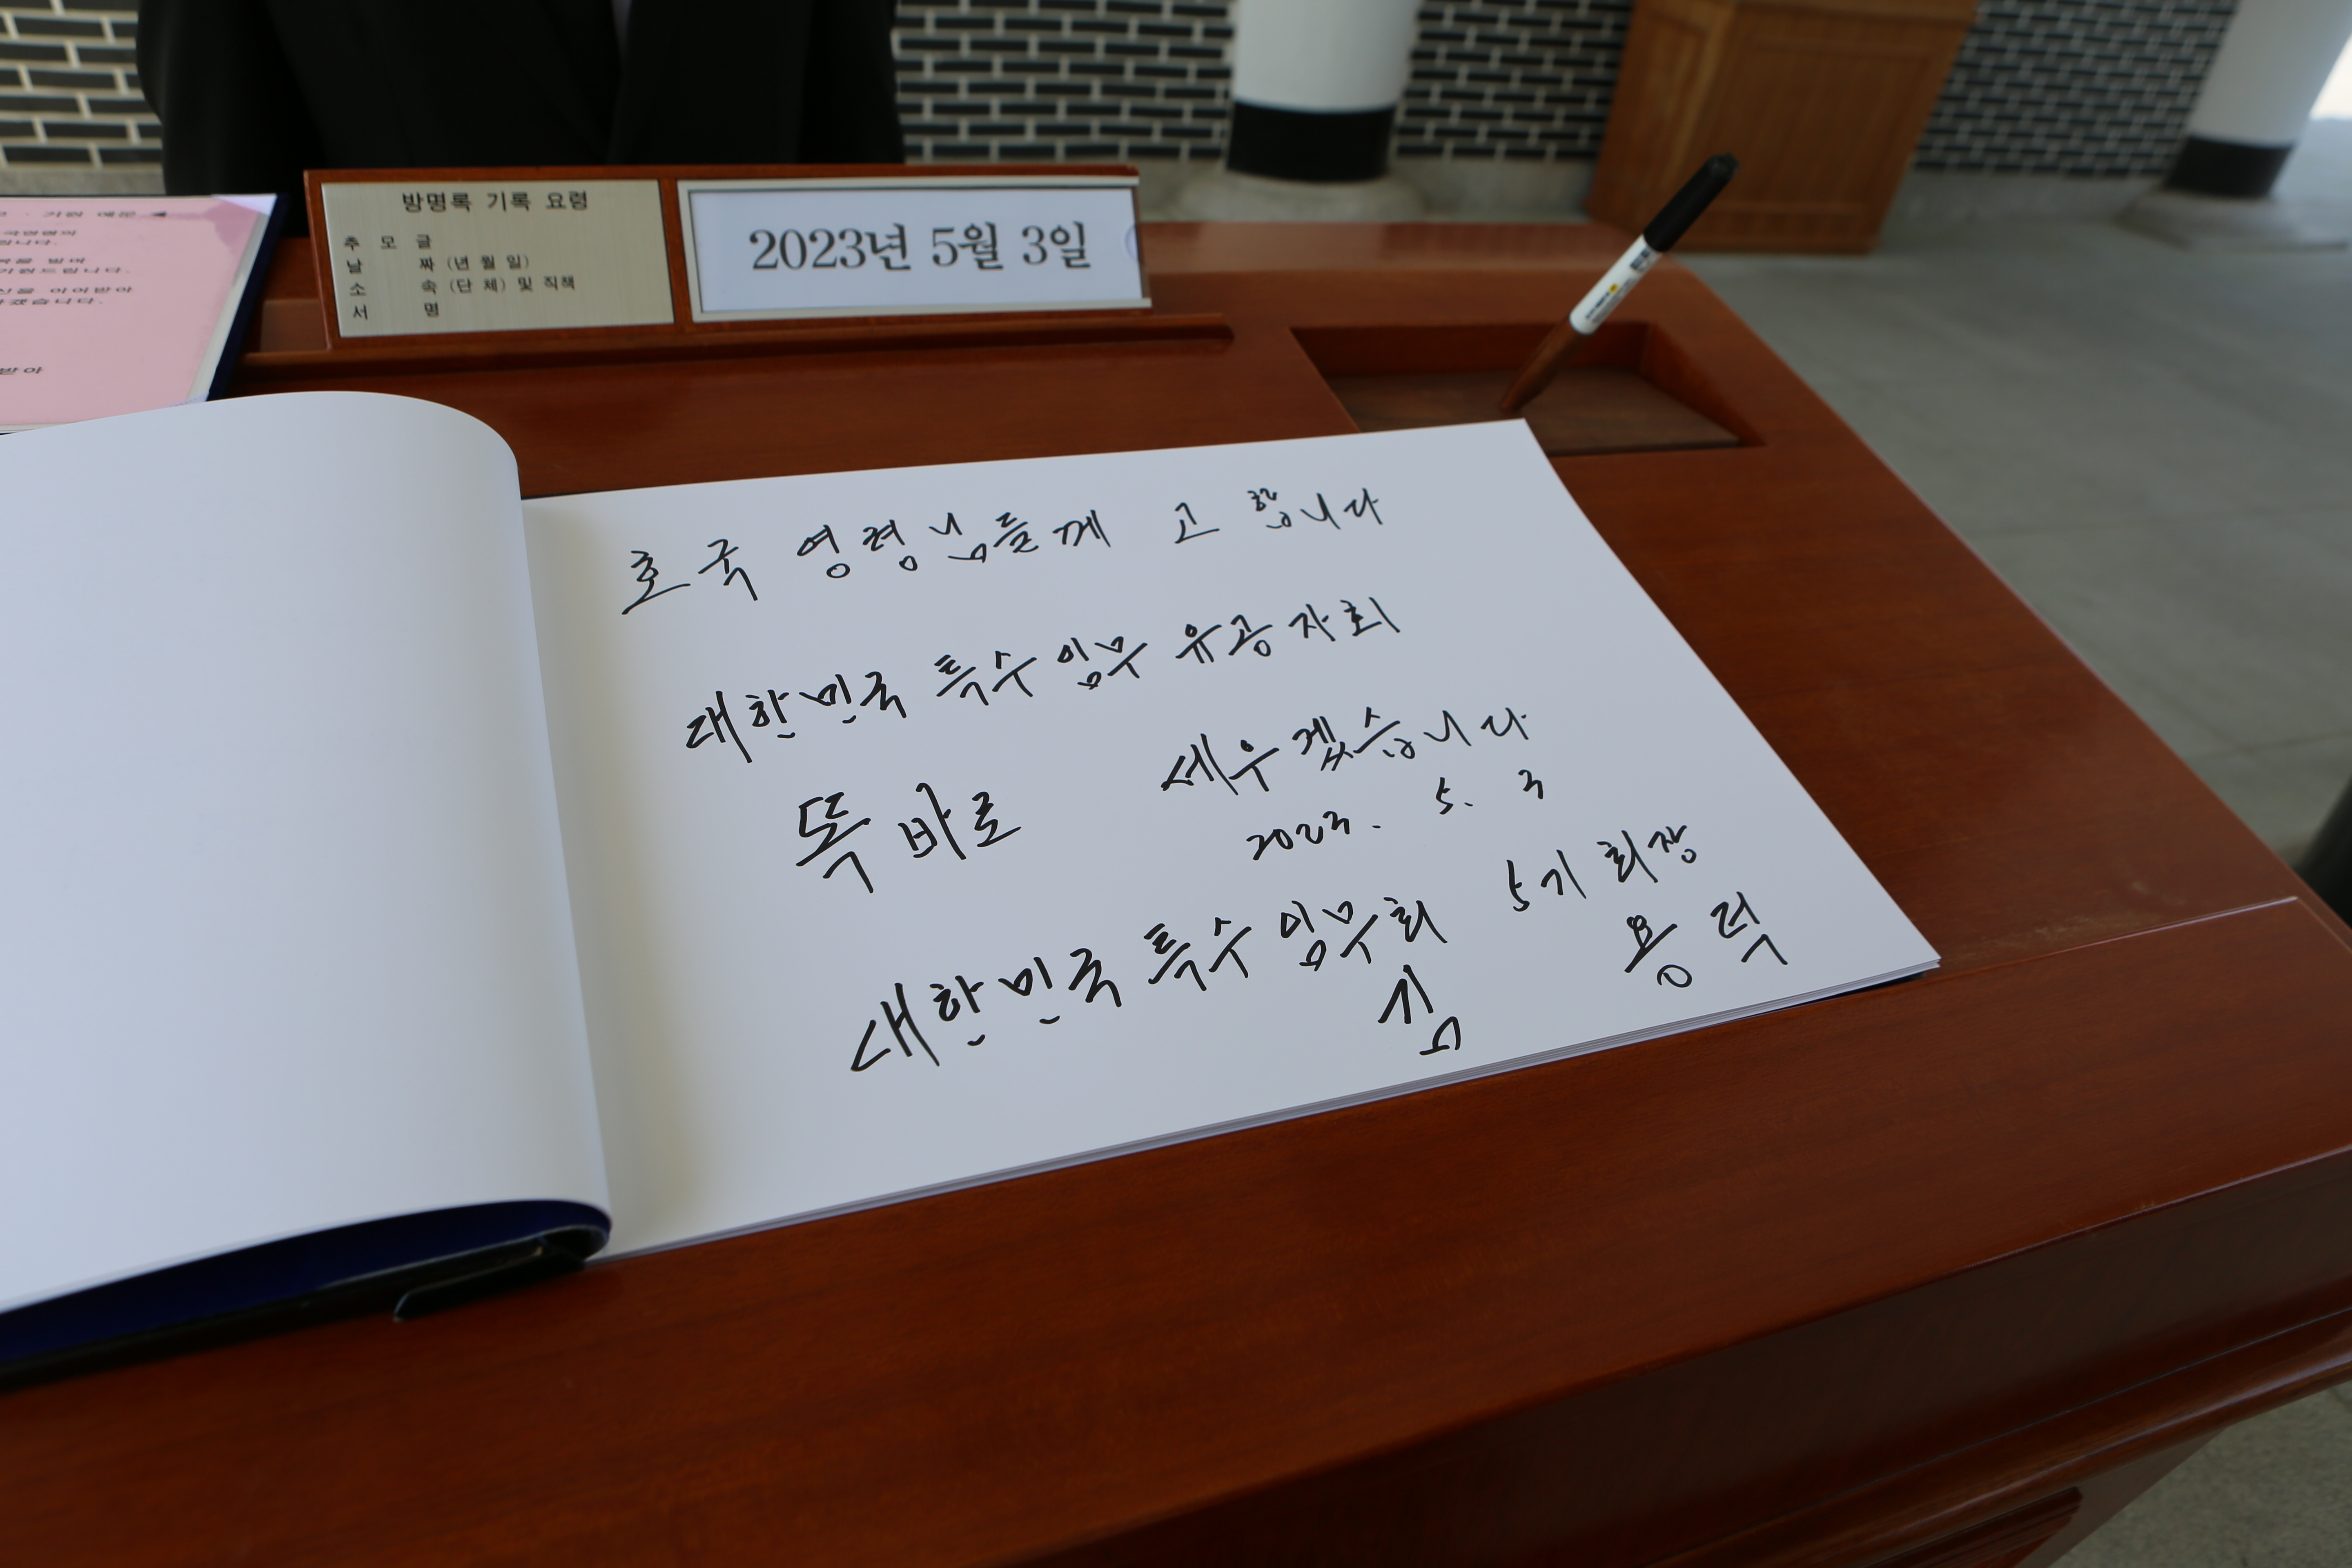 방명록 기록 요령
추 모 글
날 짜 (년 월 일)
소 속 (단 체) 및 직책
서 명
2023년 5월 3일
호국 영령님들께 고 합니다
대한민국 특수임무 유공자회
똑바로 세우겠습니다
2023. 5. 3
대한민국 특수임무회 5기 회장
김 용 덕